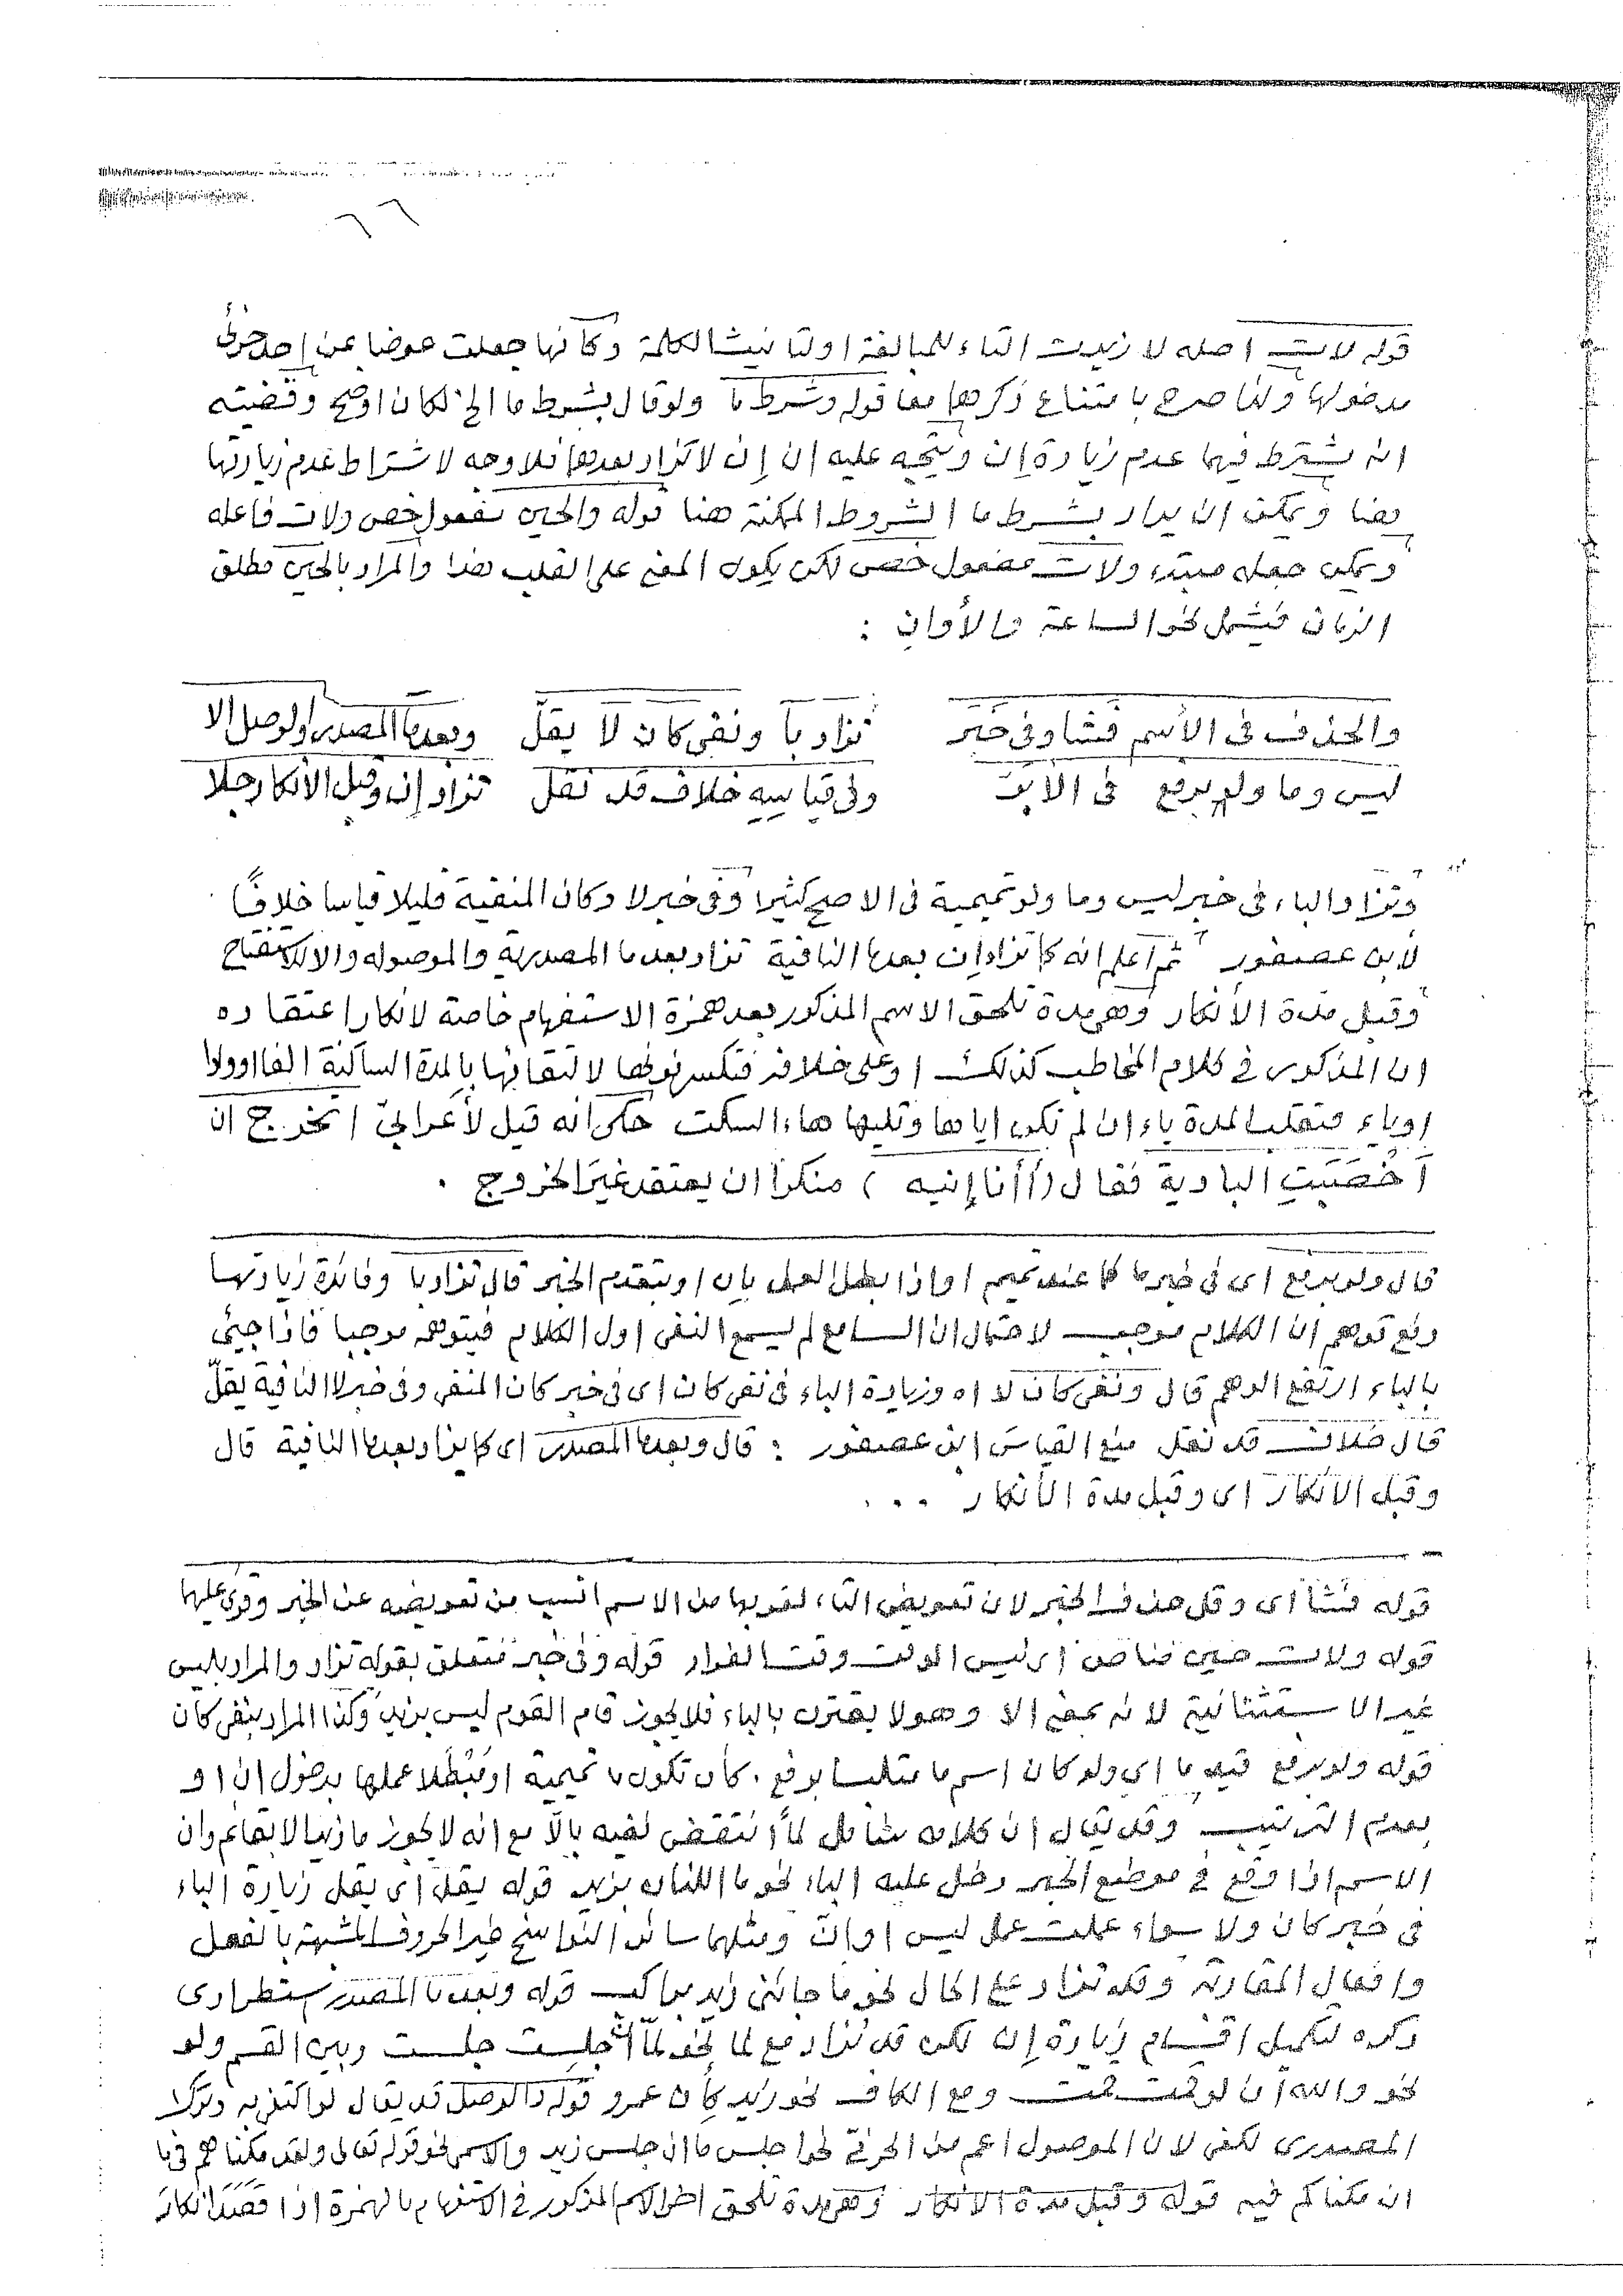 ٦٦
قوله لات اصله لا زيدت التاء للمبالغة او لتانيث الكلمة وكأنها جعلت عوضا عن احد جزئي
مدخولها ولذا صرح بامتناع ذكرهما معا قوله وشرط ما ولو قال بشرط ما الخ لكان اوضح وقضيته
انه يشترط فيها عدم زيادة إن ويتجه عليه ان إن لا تزاد بعدها فلا وجه لاشتراط عدم زيادتها
هنا ويمكن ان يراد بشرط ما الشروط الممكنة هنا قوله والحين مفعول خص ولات فاعله
ويمكن جعله مبتدء ولات مفعول خص لكن يكون المعنى على القلب هذا والمراد بالحين مطلق
الزمان فيشمل نحو الساعة والأوان :
والحذف فى الأسم فشا وفى خبر تزاد با ونفى كان لا يقلّ وبعد ما المصدر او لوصل الا
ليس وما ولو برفع فى الأبر وفى قياسيه خلاف قد نقل تزاد إن وقبل الأنكار جلا
وتزاد الباء فى خبر ليس وما ولو تميمية فى الاصح كثيرا وفى خبر لا وكان المنفية قليلا قياسا خلافًا
لأبن عصفور ثم اعلم انه كما تزاد إن بعد ما النافية تزاد بعد ما المصدرية والموصوله والا للاستفتاح
وقبل مدة الأنكار وهى مدة تلحق الاسم المذكور بعد همزة الاستفهام خاصة لانكار اعتقاده
ان المذكور فى كلام المخاطب كذلك او على خلافه فتكسر نونها لالتقائها بالمدة الساكنة الفا او واوا
او ياء فتقلب المدة ياء ان لم تكن اياها وتليها هاء السكت حكى انه قيل لأعرابيّ اتخرج ان
أَخْصَبَتِ البادية فقال (أأنا إنيه) منكرا ان يعتقد غيرَ الخروج .
قال ولو برفع اى فى خبر ما كما عند تميم او اذا بطل العمل بإن او بتقدم الخبر قال تزاد با وفائدة زيادتها
رفع توهم ان الكلام موجب لاحتمال ان السامع لم يسمع النفى اول الكلام فيتوهمه موجبا فاذا جيئ
بالباء ارتفع الوهم قال ونفى كان لا اه وزيادة الباء فى نفى كان اى فى خبر كان المنفى وفى خبر لا النافية يقلّ
قال خلاف قد نقل منع القياسَ ابن عصفور : قال وبعد ما المصدر اى كما يزاد بعد ما النافية قال
وقبل الانكار اى وقبل مدة الأنكار ...
قوله فشا اى وقل حذف الخبر لان تعويض التاء لقربها من الاسم انسب من تعويضه عن الخبر وقرئ عليها
قوله ولات حين مناص اى ليس الوقت وقت الفرار قوله وفى خبر متعلق بقوله تزاد والمراد بليس
غير الاستثنائية لانه بمعنى الا وهو لا يقترن بالباء فلا يجوز قام القوم ليس بزيد وكذا المراد بنفى كان
قوله ولو برفع قيد ما اي ولو كان اسم ما متلبسا برفع . كأن تكون ما تميمية او مُبْطَلا عملها بدخول ان او
بعدم الترتيب وقد يقال ان كلامه شامل لما انتقض نفيه بالّا مع انه لا يجوز ما زيد الا بقائم وان
الاسم اذا وقع فى موضع الخبر دخل عليه الباء نحو ما اللذان بزيد قوله يقل اى يقل زيادة الباء
فى خبر كان ولا سواء عملت عمل ليس او انّ ومثلهما سائر النواسخ غير الحروف المشبهة بالفعل
وافعال المقاربة وقد تزاد على الحال نحو ما جائنى زيد براكب قوله وبعد ما المصدر استطرادى
ذكره لتكميل اقسام زيادة إن لكن قد تزاد مع لما نحو لمّا ان جلست جلست وبين القسم ولو
نحو والله أن لو قمت قمت ومع الكاف نحو زيد كأن عمرو قوله والوصل قد يقال لو اكتفى به وترك
المصدرى لكفى لان الموصول اعم من الحرفيّ نحو اجلس ما ان جلس زيد والاسمى نحو قوله تعالى ولقد مكناهم فى ما
ان مكناكم فيه قوله وقبل مدة الانكار وهى مدة تلحق اخر الاسم المذكور فى الاستفهام بالهمزة اذا قصد انكار